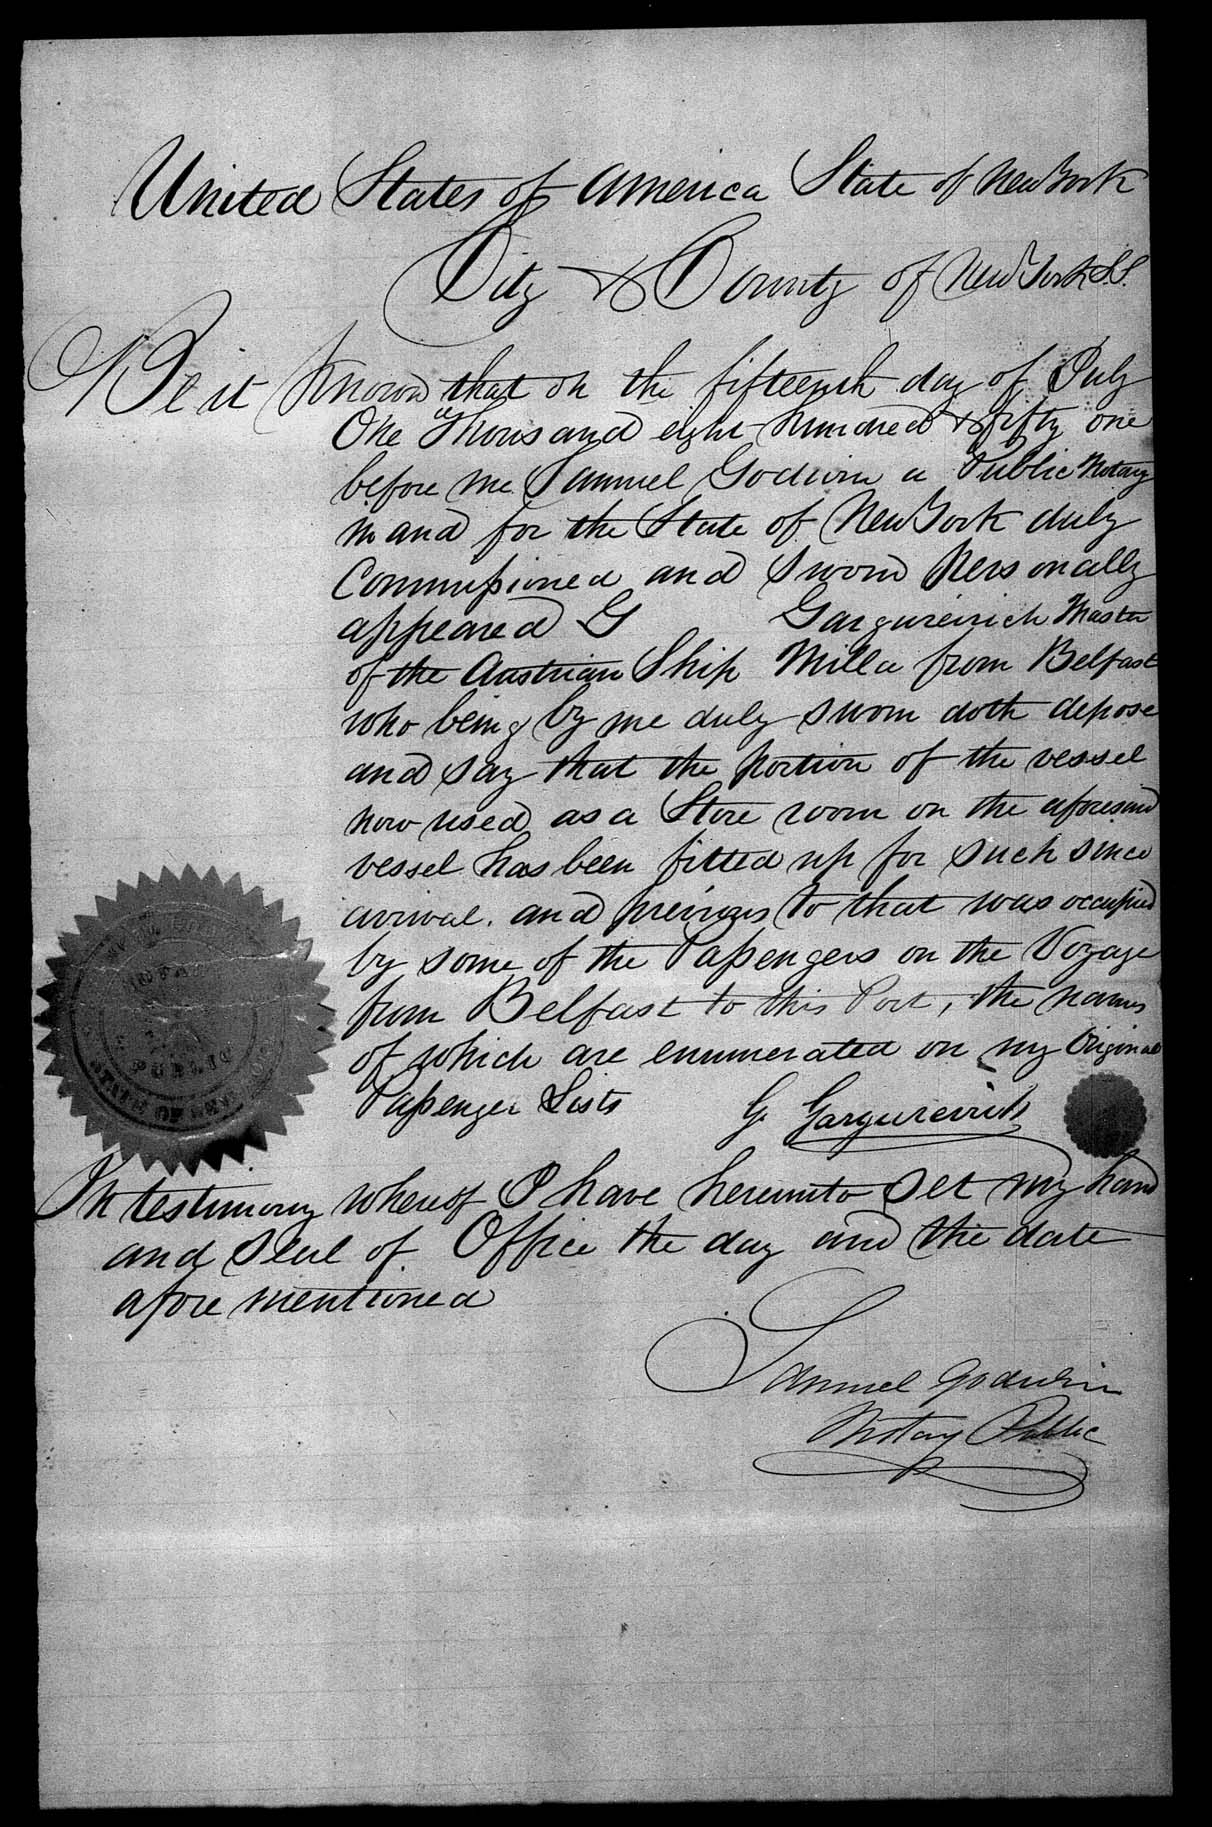 United States of America State of New York
City & County of New York S.S.
Be it Known that on the fifteenth day of July
One Thousand eight hundred & fifty one
before me Samuel Godwin a Public Notary
in and for the State of New York duly
Commissioned and sworn Personally
appeared G Gargureivich Master
of the Austrian Ship Milla from Belfast
who being by me duly sworn doth depose
and say that the portion of the vessel
now used as a Store room on the aforesaid
vessel has been fitted up for such since
arrival. and previous to that was occupied
by some of the Passengers on the Voyage
from Belfast to this Port, the names
of which are enumerated on my Original
Passenger Lists
G. Gargureivich
In testimony whereof I have hereunto set my hand
and seal of Office the day and the date
afore mentioned
Samuel Godwin
Notary Public
NOTARY
PUBLIC
STATE OF NEW YORK